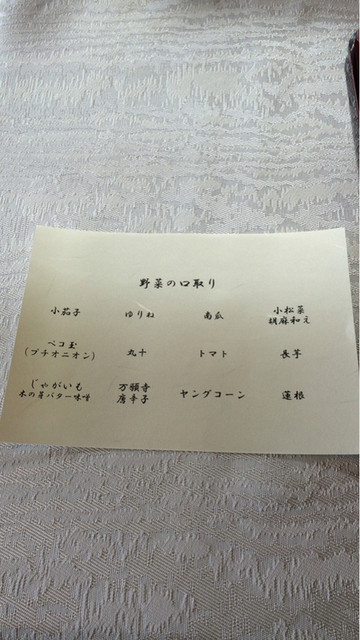 野菜の口取り
小茄子 ゆりね 南瓜 小松菜
胡麻和え
ペコ玉
(プチオニオン) 丸十 トマト 長芋
じゃがいも
木の芽バター味噌 万願寺
唐辛子 ヤングコーン 蓮根